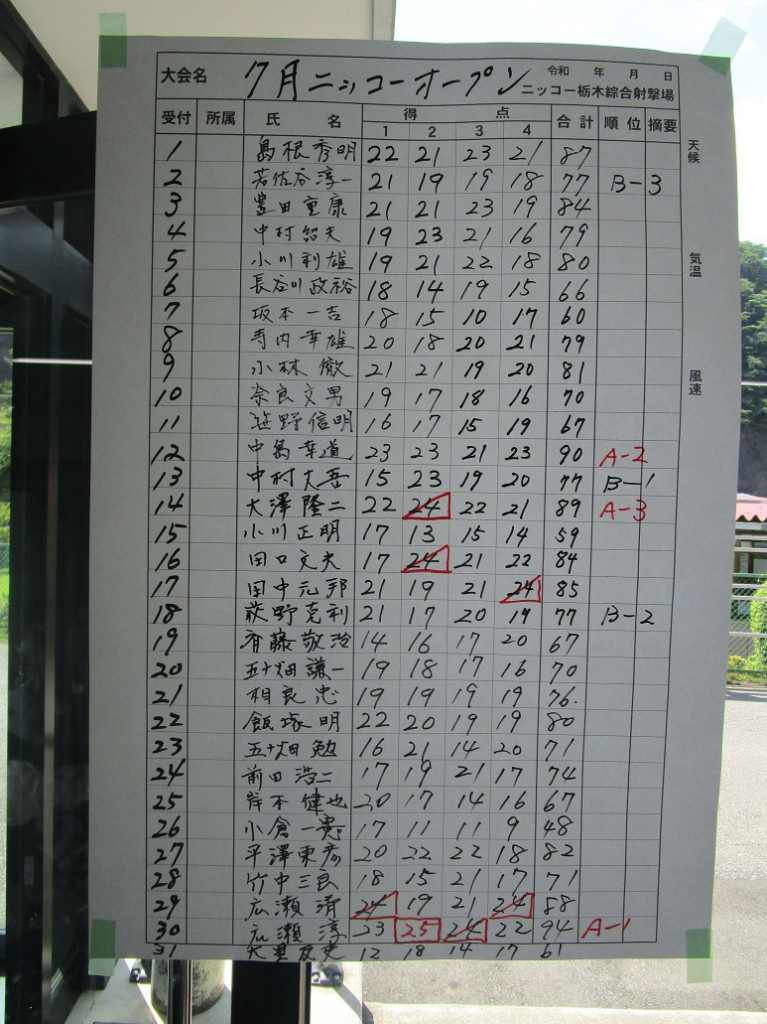 大会名 7月ニッコーオープン 令和 年 月 日
ニッコー栃木綜合射撃場
受付 所属 氏名 得点 合計 順位 摘要
1 2 3 4
天候
気温
風速
1 島根秀明 22 21 23 21 87
2 若佐谷淳一 21 19 19 18 77 B-3
3 豊田重康 21 21 23 19 84
4 中村紹夫 19 23 21 16 79
5 小川利雄 19 21 22 18 80
6 長谷川政裕 18 14 19 15 66
7 坂本一吉 18 15 10 17 60
8 寺内幸雄 20 18 20 21 79
9 小林徹 21 21 19 20 81
10 奈良文男 19 17 18 16 70
11 笹野信明 16 17 15 19 67
12 中島幸道 23 23 21 23 90 A-2
13 中村大吾 15 23 19 20 77 B-1
14 大澤隆二 22 24 22 21 89 A-3
15 小川正明 17 13 15 14 59
16 田口文夫 17 24 21 22 84
17 田中元邦 21 19 21 24 85
18 荻野克利 21 17 20 19 77 B-2
19 斉藤敬 14 16 17 20 67
20 五十畑謙一 19 18 17 16 70
21 相良忠 19 19 19 19 76.
22 飯塚明 22 20 19 19 80
23 五十畑勉 16 21 14 20 71
24 前田浩二 17 19 21 17 74
25 岸本健也 20 17 14 16 67
26 小倉一貴 17 11 11 9 48
27 平澤東彦 20 22 22 18 82
28 竹中三良 18 15 21 17 71
29 広瀬清 24 19 21 24 88
30 広瀬淳 23 25 24 22 94 A-1
31 12 18 14 17 61